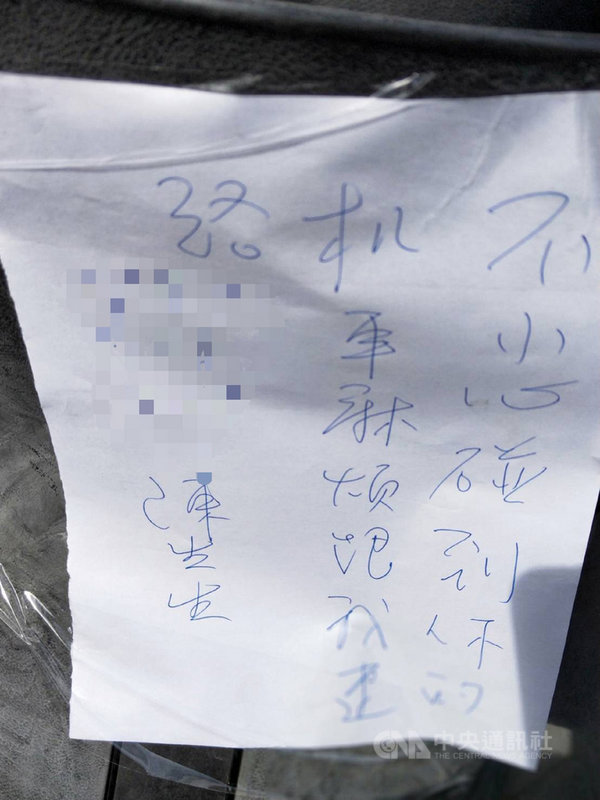 不小心碰到你的
机車麻煩跟我連
絡
陳先生
CNA 中央通訊社
THE CENTRAL NEWS AGENCY